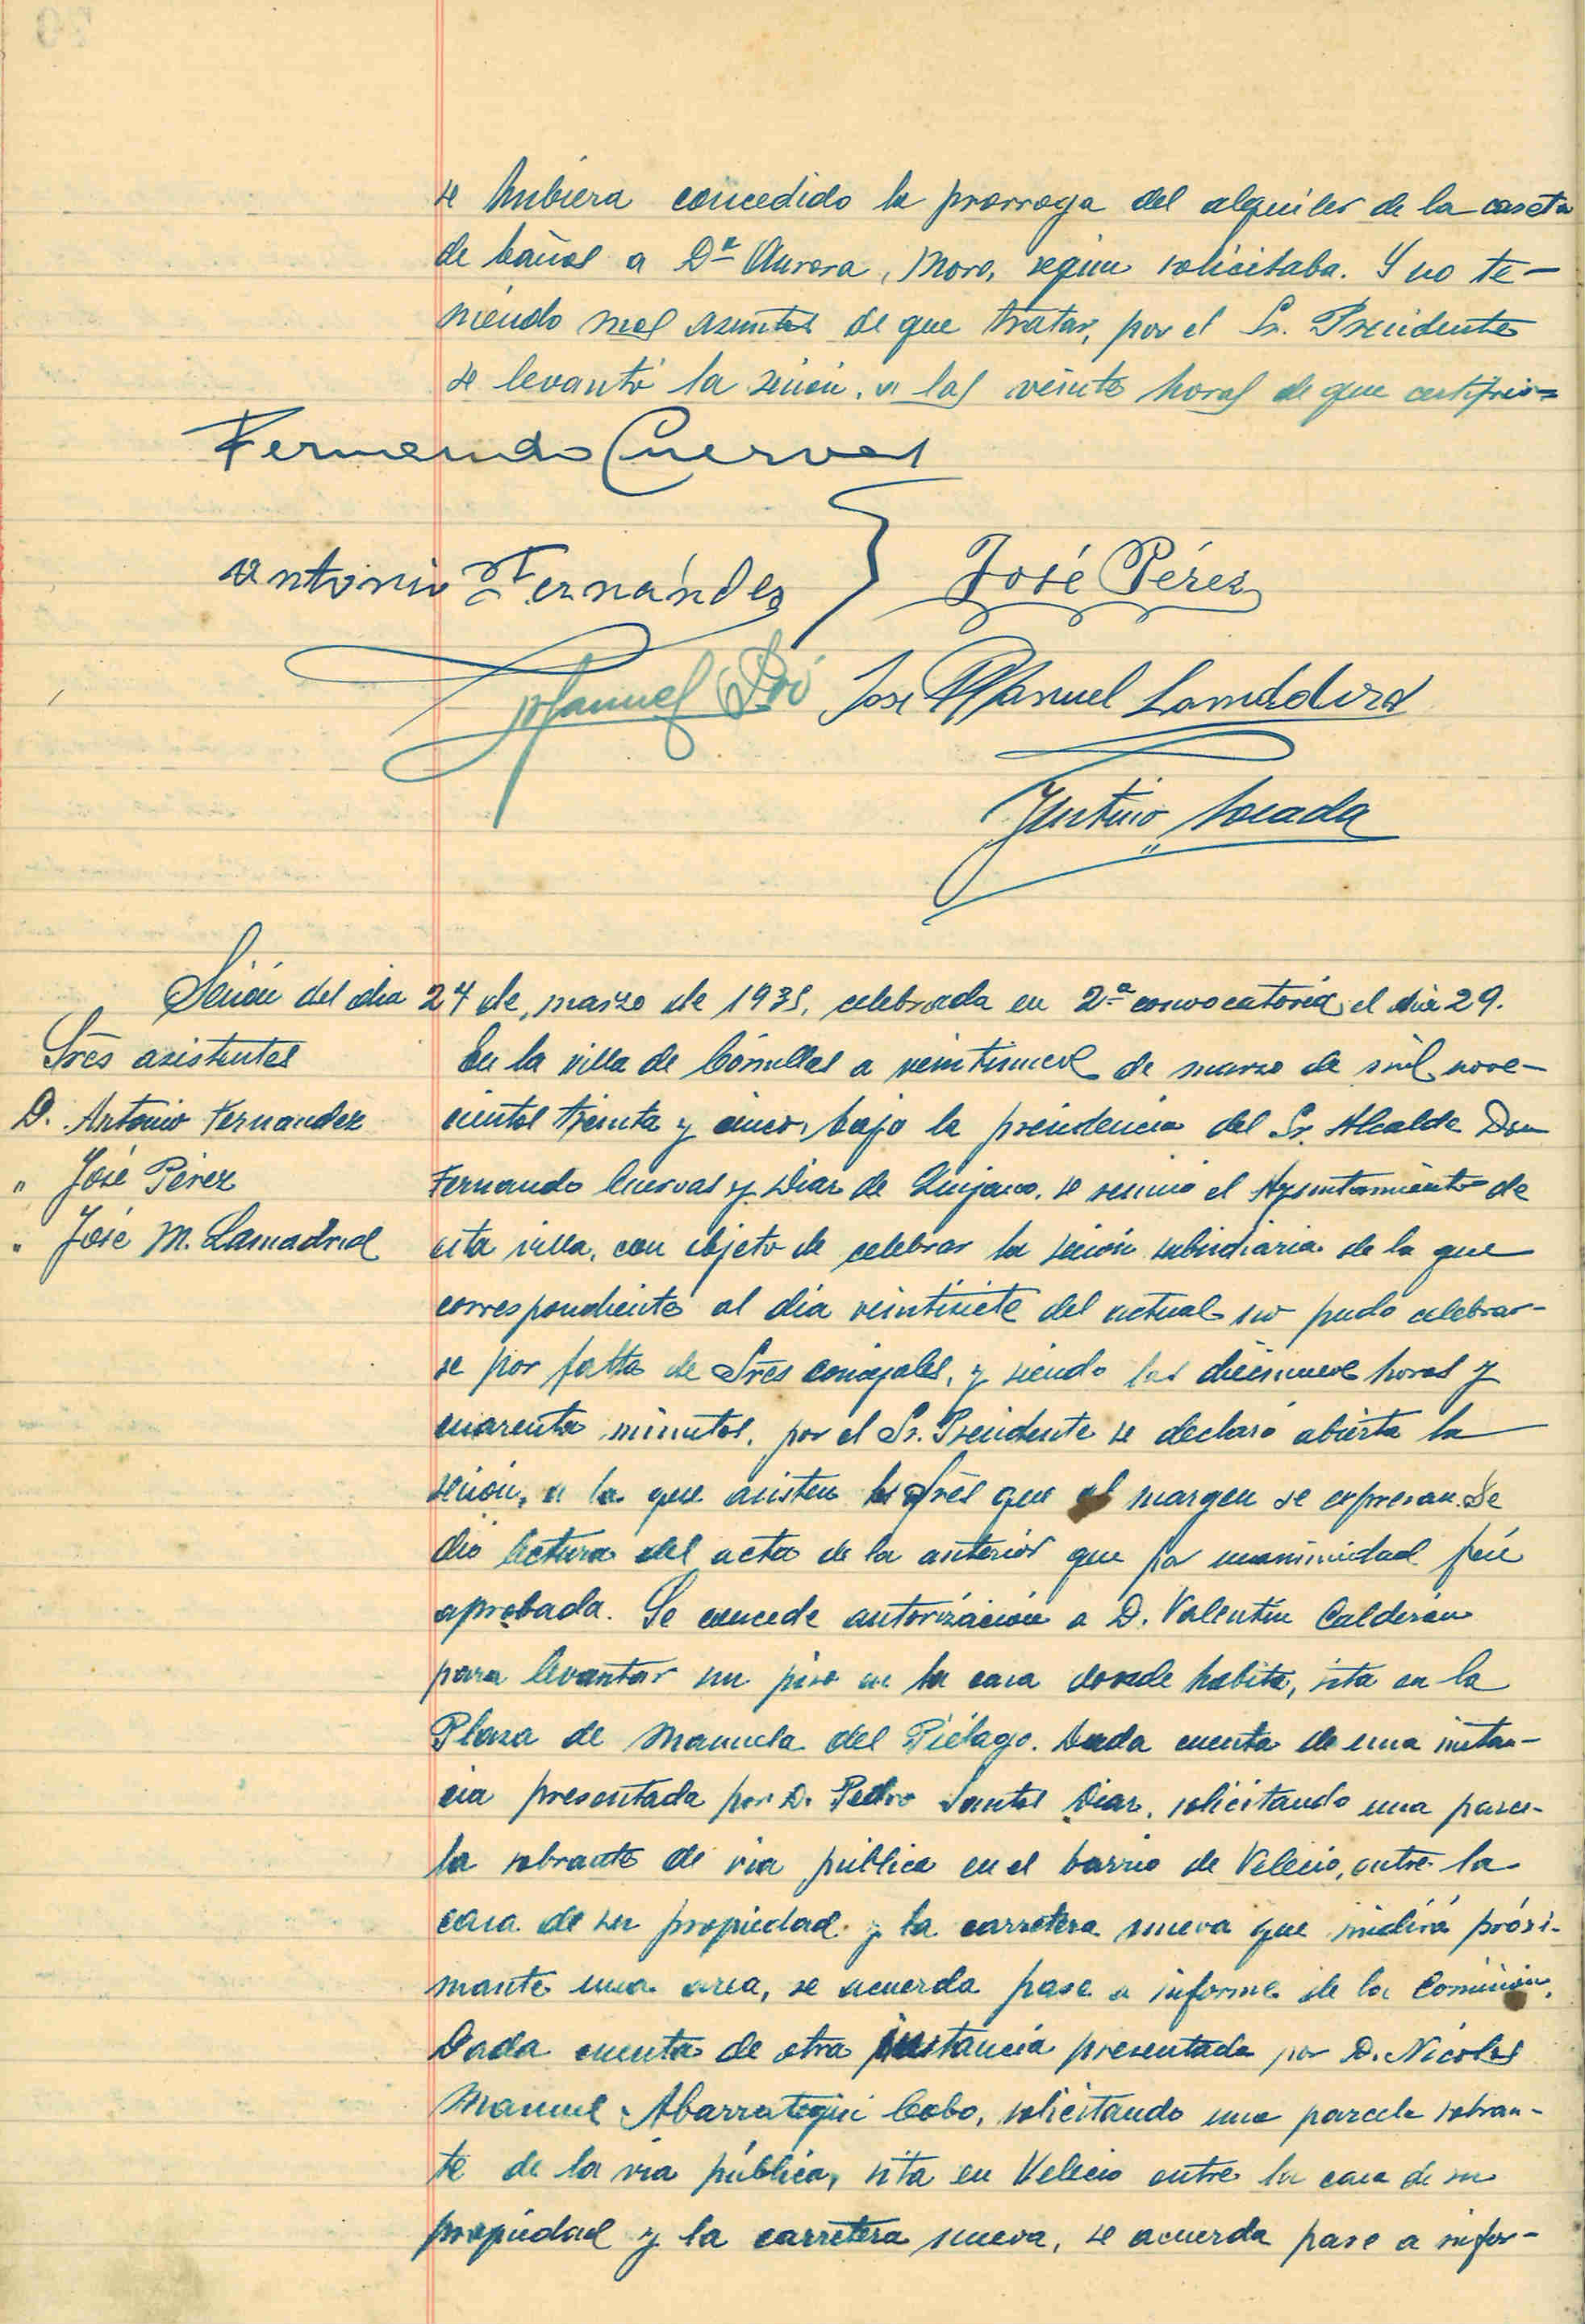 se hubiera concedido la prorroga del alquiler de la caseta
de baños a Dª Aurora Moro, según solicitaba. Y no te-
niendo mas asuntos de que tratar, por el Sr. Presidente
se levantó la sesión, a las veinte horas de que certifico=
Fernando Cuervas
Antonio Fernández José Pérez
Manuel José Manuel Lamadrid
Justino
Sesión del dia 24 de marzo de 1935, celebrada en 2ª convocatoria el dia 29.
Sres asistentes
D. Antonio Fernandez
" José Pérez
" José M. Lamadrid
En la villa de Comillas a veintinueve de marzo de mil nove-
cientos treinta y cinco, bajo la presidencia del Sr. Alcalde Don
Fernando Cuervas y Diaz de Quijano, se reunió el Ayuntamiento de
esta villa, con objeto de celebrar la sesión subsidiaria de la que
correspondiente al día veintisiete del actual no pudo celebrar-
se por falta de Sres concejales, y siendo las diecinueve horas y
cuarenta minutos, por el Sr. Presidente se declaró abierta la
sesión, a la que asisten los Sres que al margen se expresan. Se
dió lectura del acta de la anterior que por unanimidad fué
aprobada. Se concede autorización a D. Valentín Calderón
para levantar un piso en la casa donde habita, sita en la
Plaza de Manuela del Piélago. Dada cuenta de una instan-
cia presentada por D. Pedro Santos Diaz, solicitando una parce-
la sobrante de via pública en el barrio de Velecio, entre la
casa de su propiedad y la carretera nueva que medirá próxi-
mante una area, se acuerda pase a informe de la Comisión.
Dada cuenta de otra instancia presentada por D. Nicolas
Manuel Abarrategui Cobo, solicitando una parcela sobran-
te de la via pública, sita en Velecio entre la casa de su
propiedad y la carretera nueva, se acuerda pase a infor-